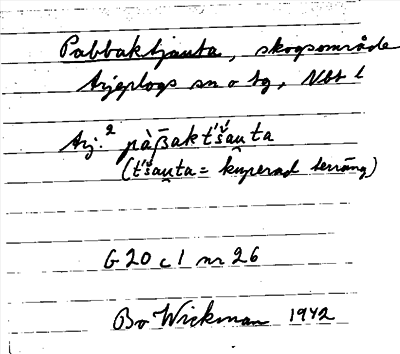 Pabbaktjauta, skogsområde
Arjeplogs sn o tg, Nbt l
Arj.² pàβakt'š́au̯ta
(t'š́au̯ta = kuperad terräng)
G 20 c 1 nr 26
Bo Wickman 1942